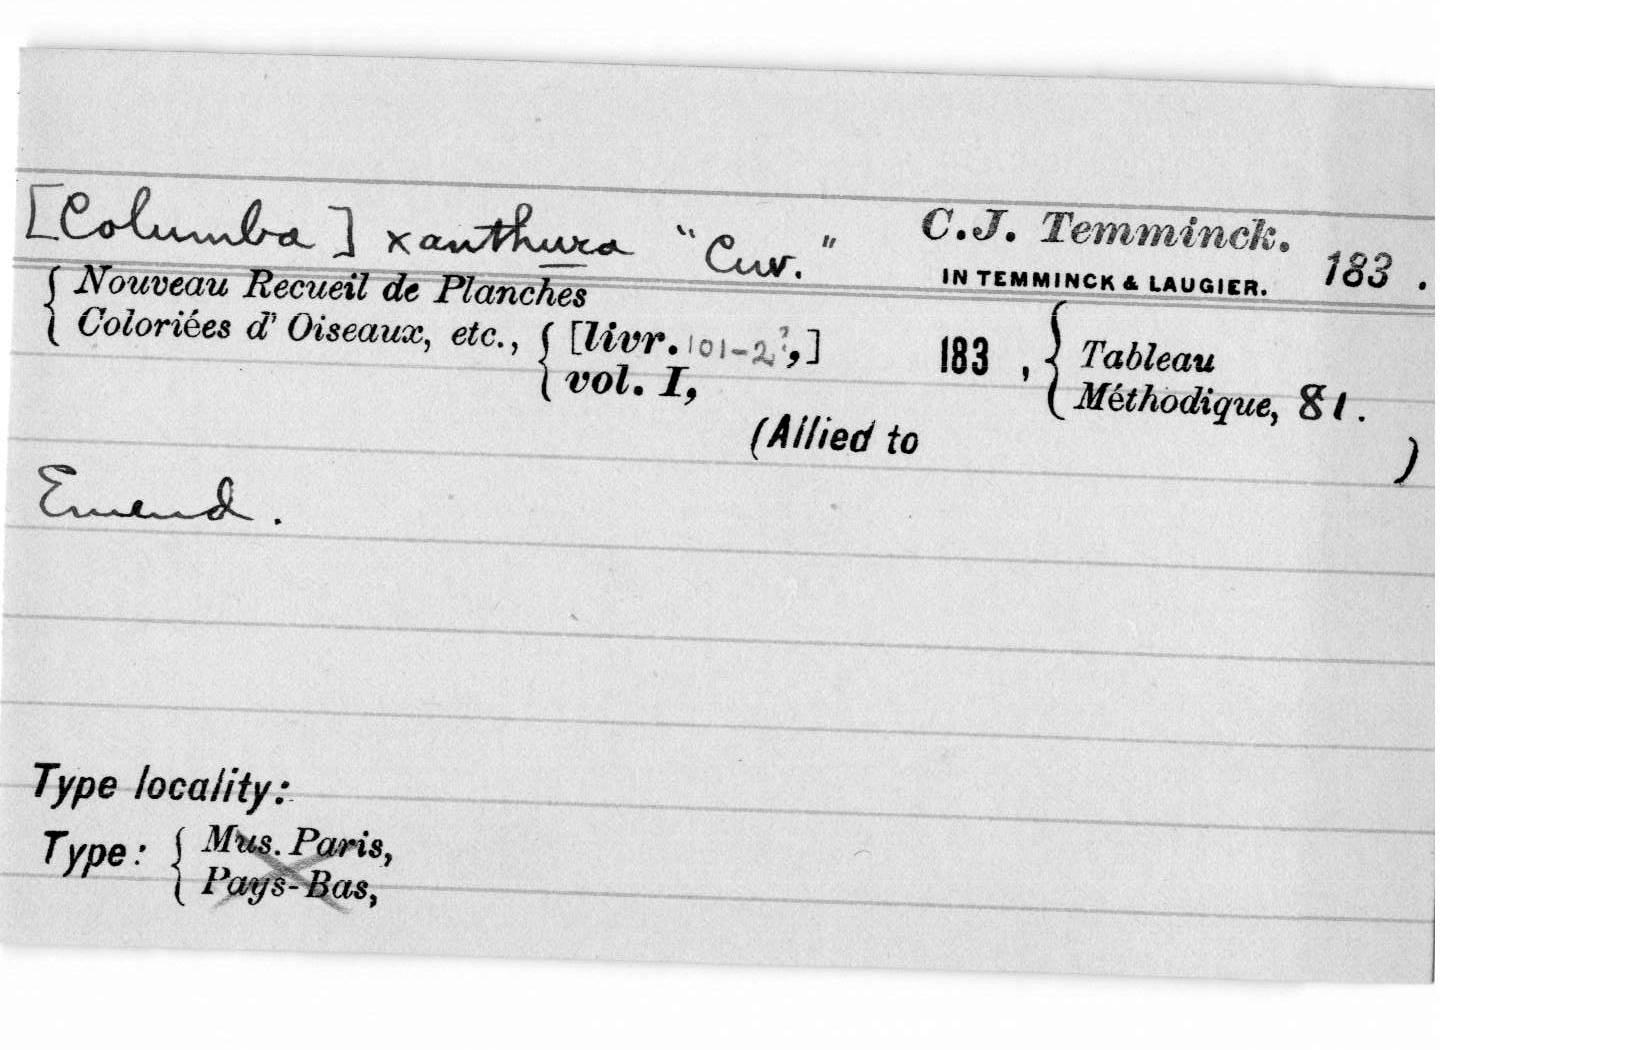 [Columba] xanthura "Cuv." C.J. Temminck.
IN TEMMINCK & LAUGIER. 183 .
{ Nouveau Recueil de Planches
Coloriées d' Oiseaux, etc., { [livr. 101-2?,] 183 , { Tableau
vol. I, Méthodique, 81.
(Allied to )
Emend.
Type locality:
Type: { Mus. Paris,
Pays-Bas,